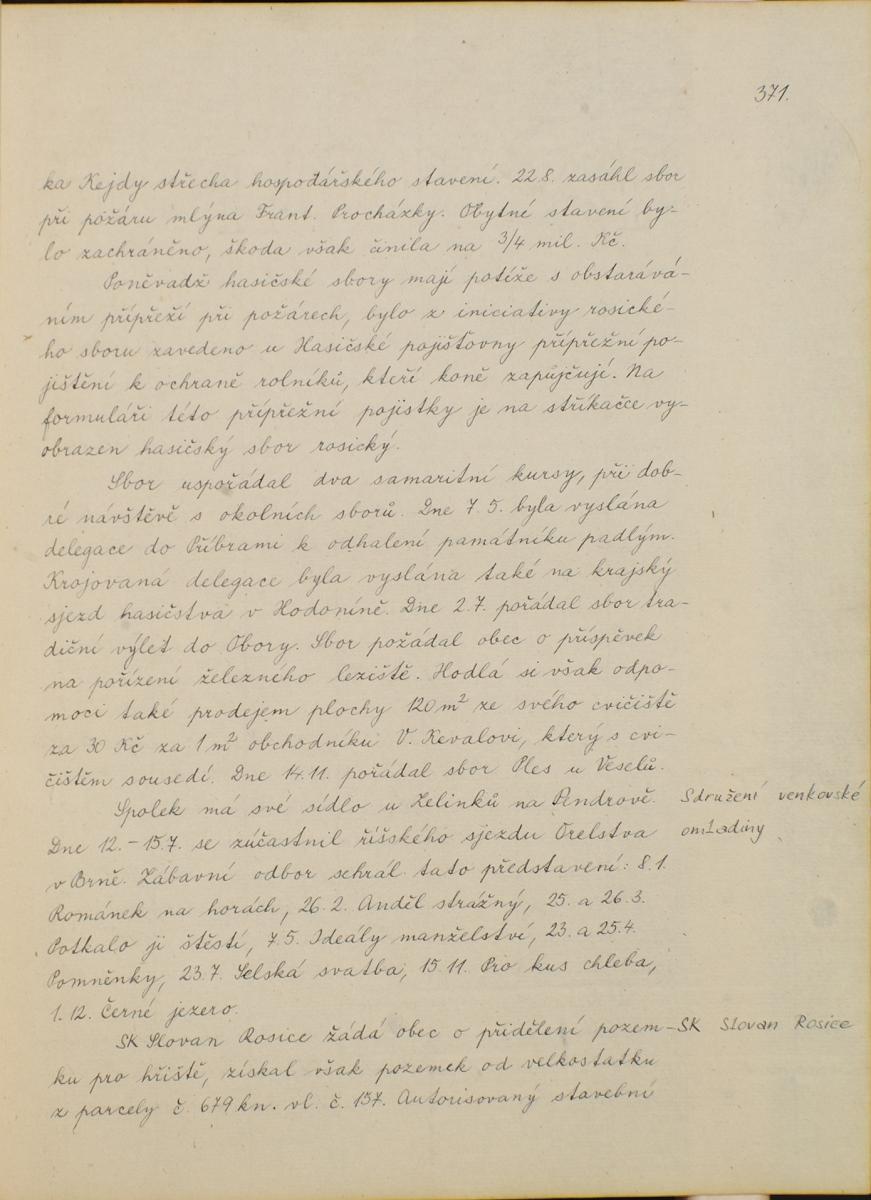 371.
ka Kejdy střecha hospodářského stavení. 22.8. zasáhl sbor
při požáru mlýna Frant. Procházky. Obytné stavení by-
lo zachráněno, škoda však činila na 3/4 mil. Kč.
Poněvadž hasičské sbory mají potíže s obstarává-
ním přípřeží při požárech, bylo z iniciativy rosické-
ho sboru zavedeno u Hasičské pojišťovny přípřežní po-
jištění k ochraně rolníků, kteří koně zapůjčují. Na
formuláři této přípřežní pojistky je na stříkačce vy-
obrazen hasičský sbor rosický.
Sbor uspořádal dva samaritní kursy, při dob-
ré návštěvě s okolních sborů. Dne 7.5. byla vyslána
delegace do Příbrami k odhalení památníku padlým.
Krojovaná delegace byla vyslána také na krajský
sjezd hasičstva v Hodoníně. Dne 2.7. pořádal sbor tra-
diční výlet do Obory. Sbor požádal obec o příspěvek
na pořízení železného leziště. Hodlá si však odpo-
moci také prodejem plochy 120 m² ze svého cvičiště
za 30 Kč za 1 m² obchodníku V. Kevalovi, který s cvi-
čištěm sousedí. Dne 14.11. pořádal sbor Ples u Veselů.
Spolek má své sídlo u Zelinků na Pendrově. Sdružení venkovské
Dne 12.-15.7. se zúčastnil říšského sjezdu Orelstva omladiny
v Brně. Zábavní odbor sehrál tato představení: 8.1.
Románek na horách, 26.2. Anděl strážný, 25. a 26.3.
Potkalo ji štěstí, 7.5. Ideály manželství, 23. a 25.4.
Pomněnky, 23.7. Selská svatba, 15.11. Pro kus chleba,
1.12. Černé jezero.
SK Slovan Rosice žádá obec o přidělení pozem- SK Slovan Rosice
ku pro hřiště, získal však pozemek od velkostatku
z parcely č. 679 kn. vl. č. 157. Autorisovaný stavební